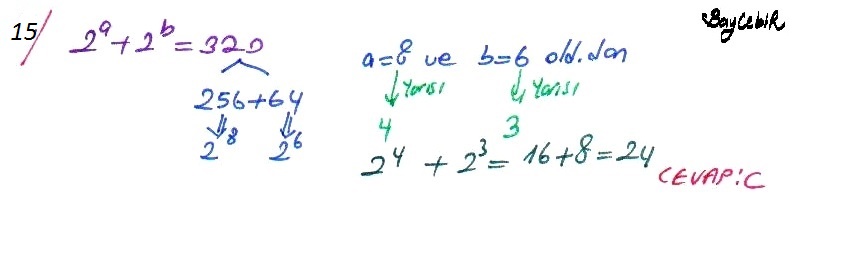 Baycebir
15/ 2^a + 2^b = 320
256+64
2^8 2^6
a=8 ve b=6 old.dan
Yarısı Yarısı
4 3
2^4 + 2^3 = 16+8=24
CEVAP:C